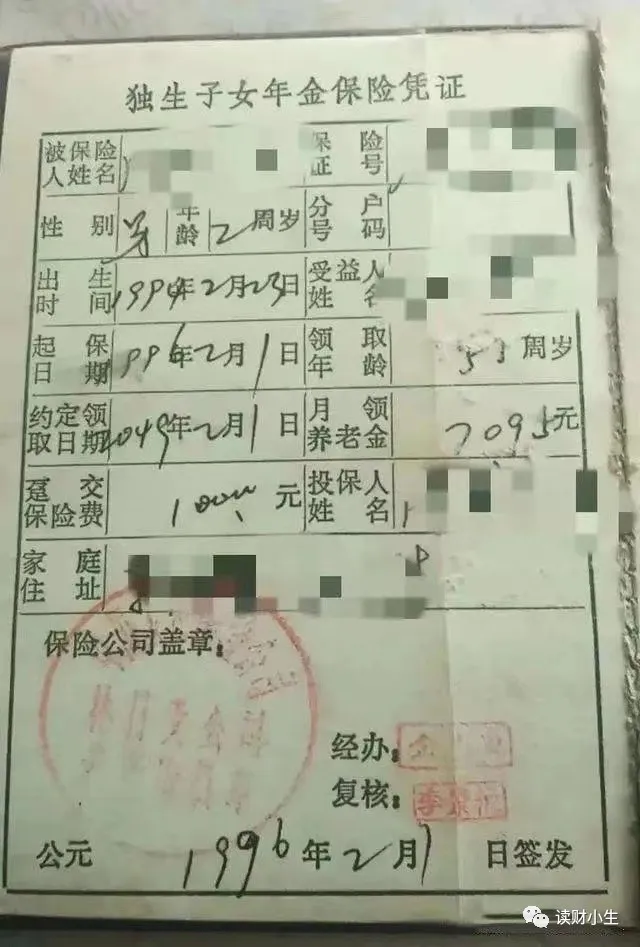 独生子女年金保险凭证
被保险人姓名 保险证号
性别 男 年龄 2周岁 分户号码
出生时间 1994年2月23日 受益人姓名
起保日期 1996年2月1日 领取年龄 55周岁
约定领取日期 2049年2月1日 月领养老金 7095元
趸交保险费 1000元 投保人姓名
家庭住址
保险公司盖章：
经办：
复核：
公元 1996年2月1日签发
读财小生